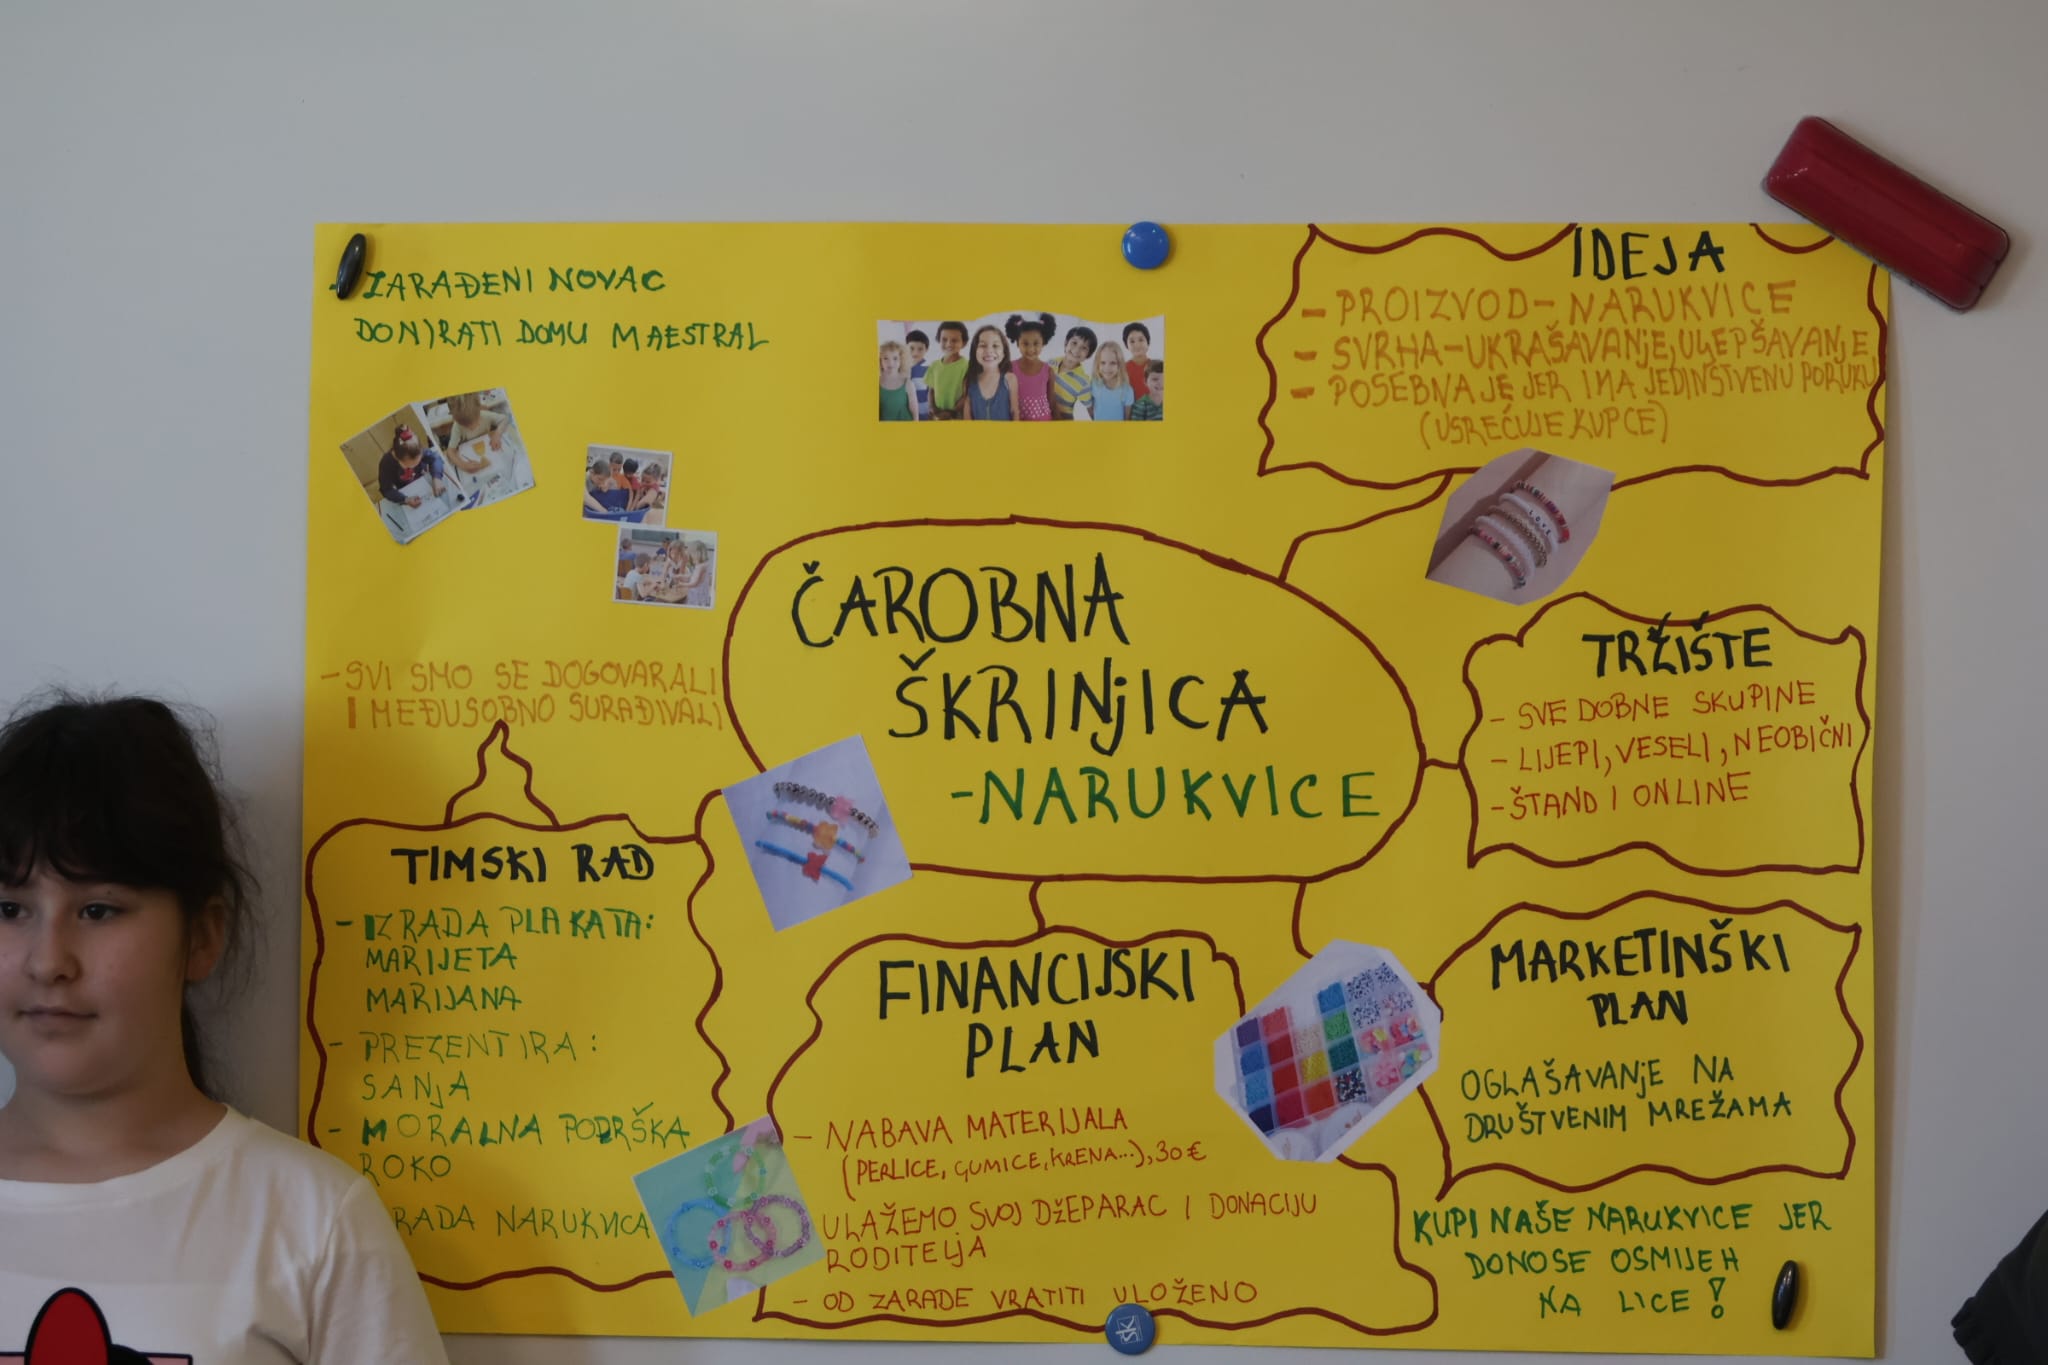 - ZARAĐENI NOVAC
DONIRATI DOMU MAESTRAL
IDEJA
- PROIZVOD - NARUKVICE
- SVRHA - UKRAŠAVANjE, ULjEPŠAVANjE
- POSEBNA JE JER IMA JEDINSTVENU PORUKU
(USREĆUJE KUPCE)
LOVE
ČAROBNA
ŠKRINjICA
- NARUKVICE
TRŽIŠTE
- SVE DOBNE SKUPINE
- LIJEPI, VESELI, NEOBIČNI
- ŠTAND I ONLINE
- SVI SMO SE DOGOVARALI
I MEĐUSOBNO SURAĐIVALI
TIMSKI RAD
- IZRADA PLAKATA:
MARIJETA
MARIJANA
- PREZENTIRA:
SANjA
- MORALNA PODRŠKA
ROKO
RADA NARUKVICA
FINANCIJSKI
PLAN
- NABAVA MATERIJALA
(PERLICE, GUMICE, KRENA...), 30 €
ULAŽEMO SVOJ DžEPARAC I DONACIJU
RODITELjA
- OD ZARADE VRATITI ULOŽENO
MARKETINŠKI
PLAN
OGLAŠAVANjE NA
DRUŠTVENIM MREŽAMA
KUPI NAŠE NARUKVICE JER
DONOSE OSMIJEH
NA LICE!
sk